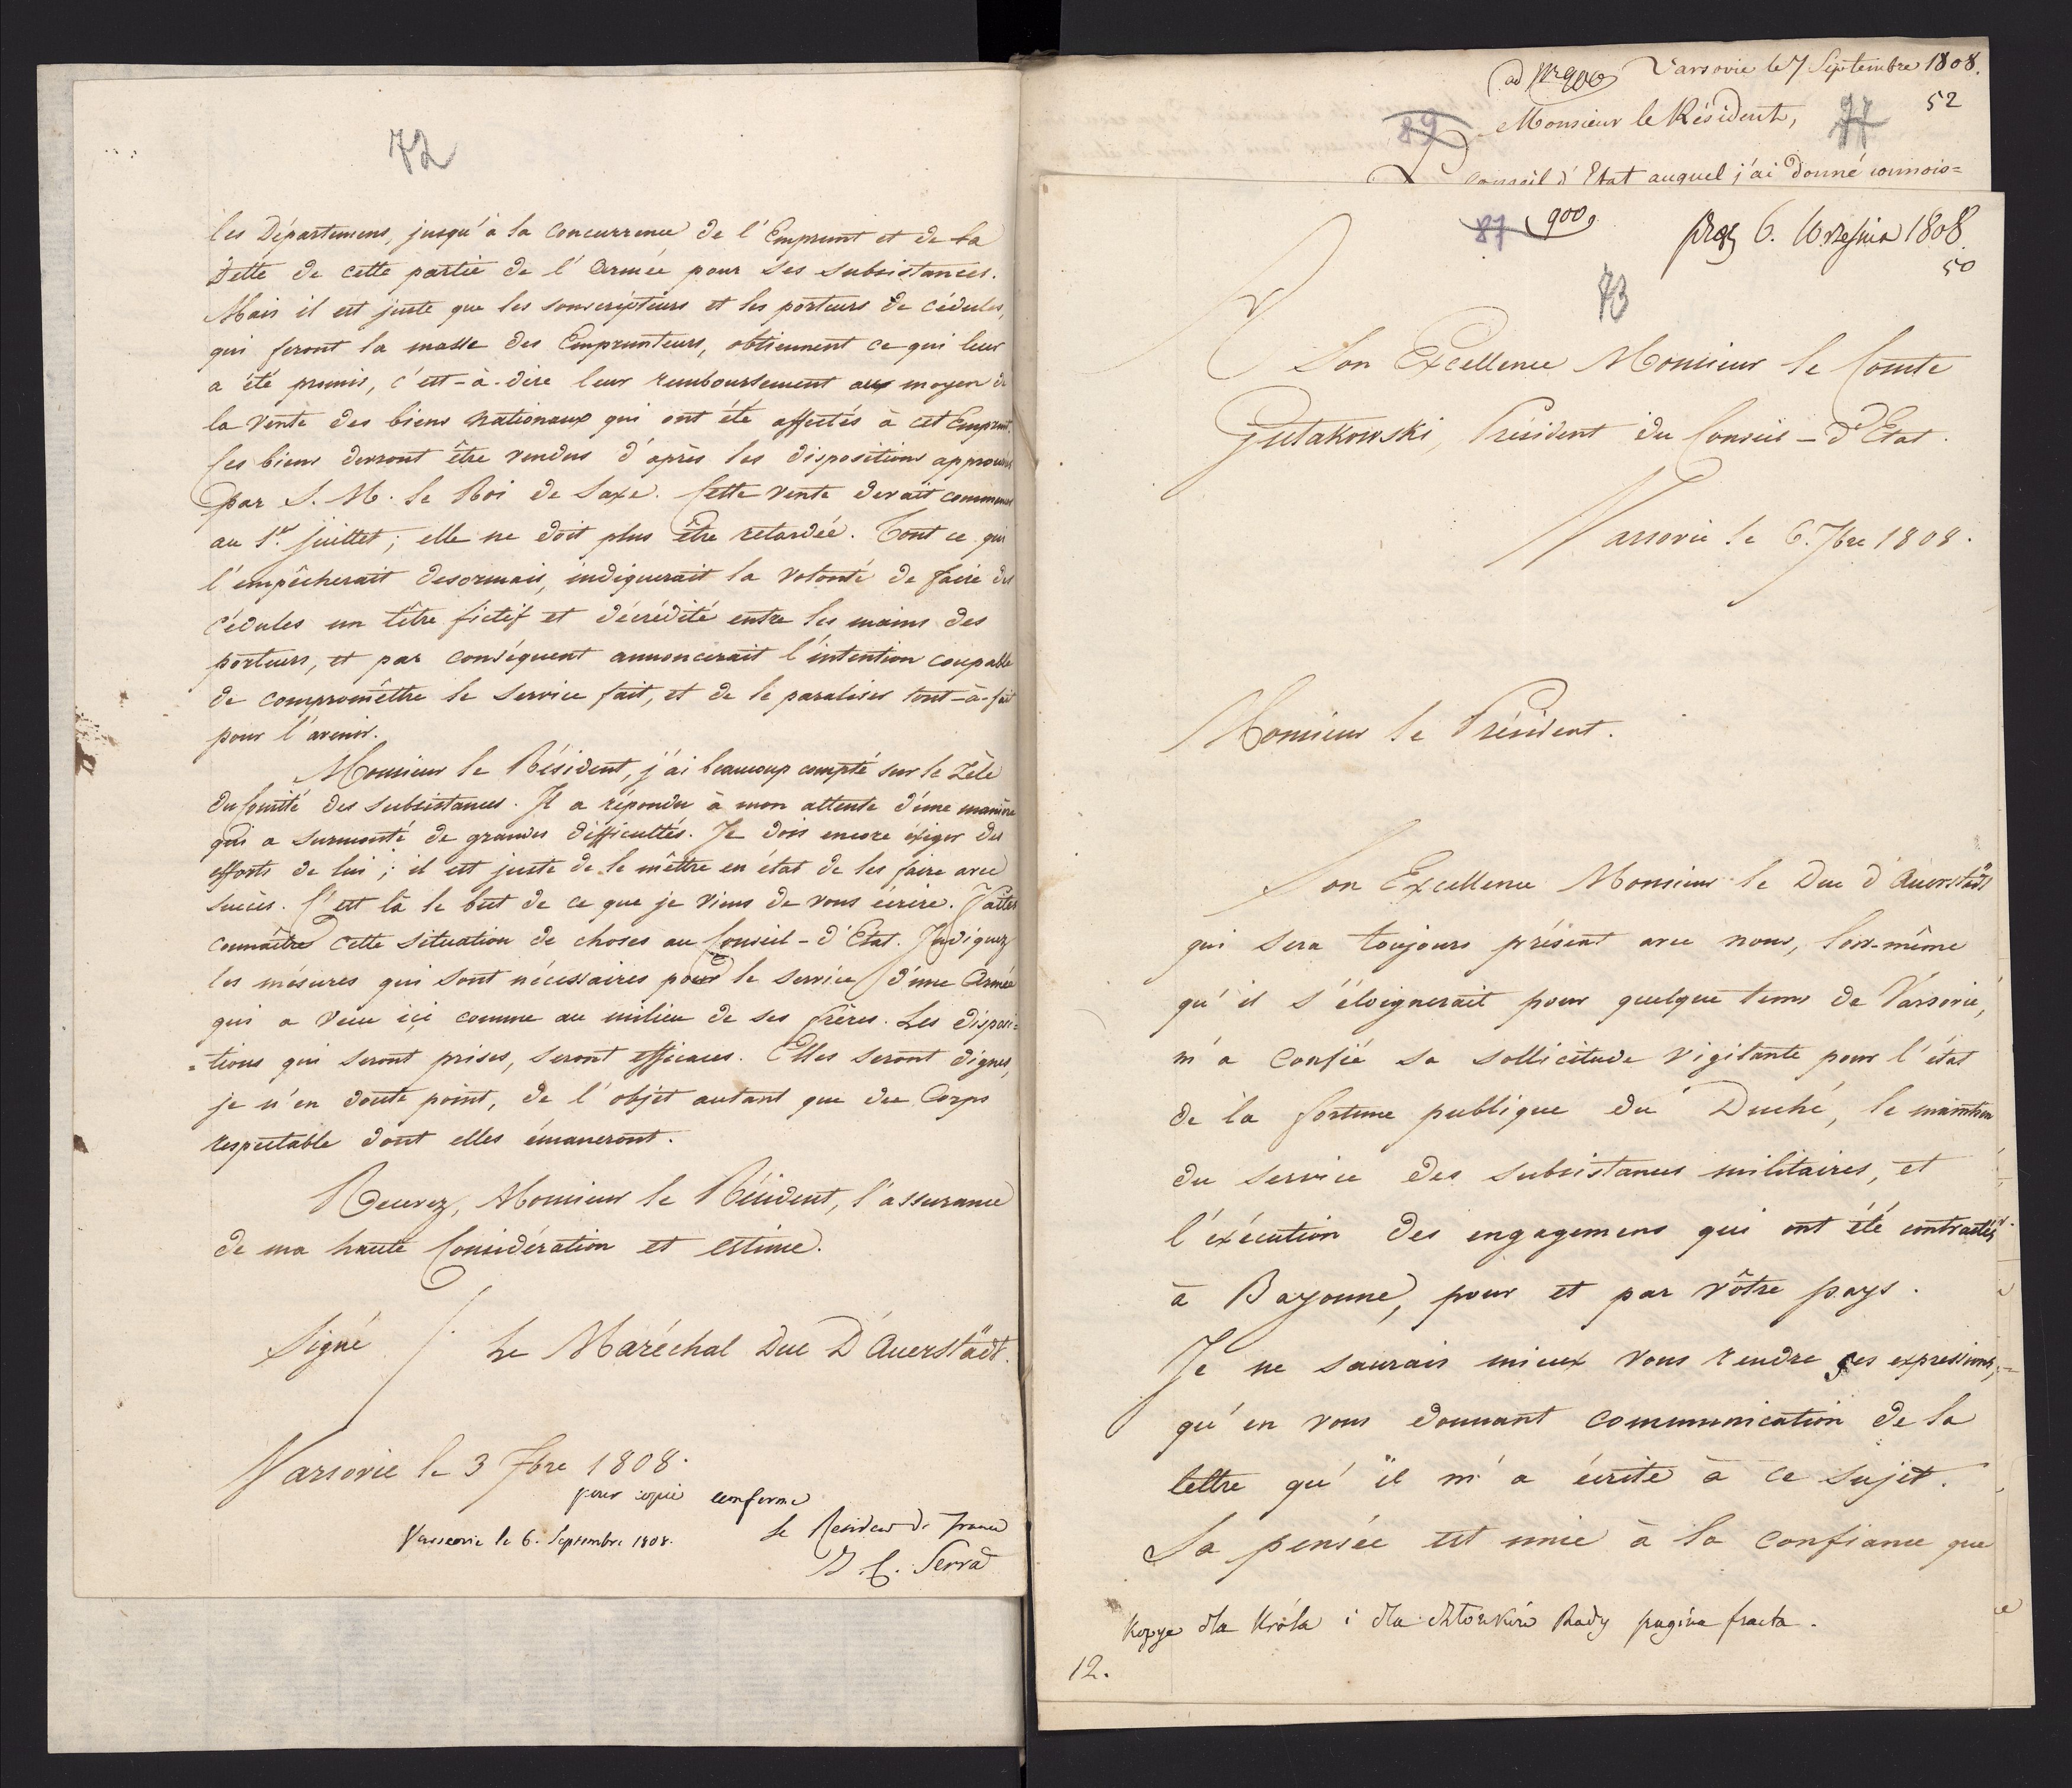 72
les Départemens, jusqu'à la concurrence de l'Emprunt et de la
Dette de cette partie de l'Armée pour ses subsistances.
Mais il est juste que les souscripteurs et les porteurs de cédules,
qui feront la masse des Emprunteurs, obtiennent ce qui leur
a été promis, c'est-à-dire leur remboursement au moyen de
la vente des biens nationaux qui ont été affectés à cet Emprunt.
Ces biens devront être vendus d'après les dispositions approuvées
par S. M. le Roi de Saxe. Cette vente devait commencer
au 1er juillet; elle ne doit plus être retardée. Tout ce qui
l'empêcherait desormais, indiquerait la volonté de faire des
cédules un têtre fictif et décrédité entre les mains des
porteurs, et par conséquent annoncerait l'intention coupable
de compromêttre le service fait, et de le paraliser tout-à-fait
pour l'avenir.
Monsieur le Résident, j'ai beaucoup compté sur le Zèle
du Comité des subsistances. Il a répondu à mon attente d'une manière
qui a surmonté de grandes difficultés. Je dois encore éxiger des
efforts de lui; il est juste de le mêttre en état de les faire avec
succès. C'est là le but de ce que je viens de vous écrire. Faites
connaître cette situation de choses au Conseil-d'Etat. Indiquez
les mésures qui sont nécessaires pour le service d'une Armée
qui a vécu ici comme au milieu de ses frères. Les disposi=
=tions qui seront prises, seront efficaces. Elles seront dignes,
je n'en doute point, de l'objet autant que du Corps
respectable dont elles émaneront.
Recevez, Monsieur le Résident, l'assurance
de ma haute Considération et estime.
Signé / Le Maréchal Duc D'Auerstädt.
Varsovie le 3 7bre 1808.
pour copie conforme
Varsovie le 6. Septembre 1808. le Resident de France
J. C. Serra
ad Nr 900 Varsovie le 7 Septembre 1808.
52
89 Monsieur le Résident, 77
Conseil d'Etat auquel j'ai donné connois=
87 900. prez 6. Września 1808.
50
73
A Son Excellence Monsieur le Comte
Gutakowski, Président du Conseil-d'Etat.
Varsovie le 6. 7bre 1808.
Monsieur le Président.
Son Excellence Monsieur le Duc d'Auerstädt
qui sera toujours présent avec nous, lors-même
qu'il s'éloignerait pour quelque tems de Varsovie,
m'a confié sa sollicitude vigilante pour l'état
de la fortune publique du Duché, le maintien
du service des subsistances militaires, et
l'éxécution des engagemens qui ont été contractés
à Bayonne, pour et par vôtre pays.
Je ne saurais mieux vous rendre ses expressions,
qu'en vous donnant communication de la
lettre qu'il m'a écrite à ce sujet.
Sa pensée est unie à la confiance que
Kopye dla Króla i dla członków Rady pagina fracta.
12.